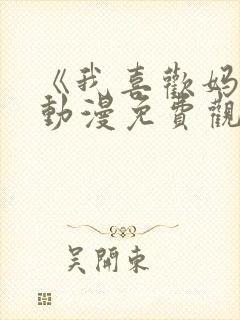 《我喜歡媽
動漫免費觀
吳開東